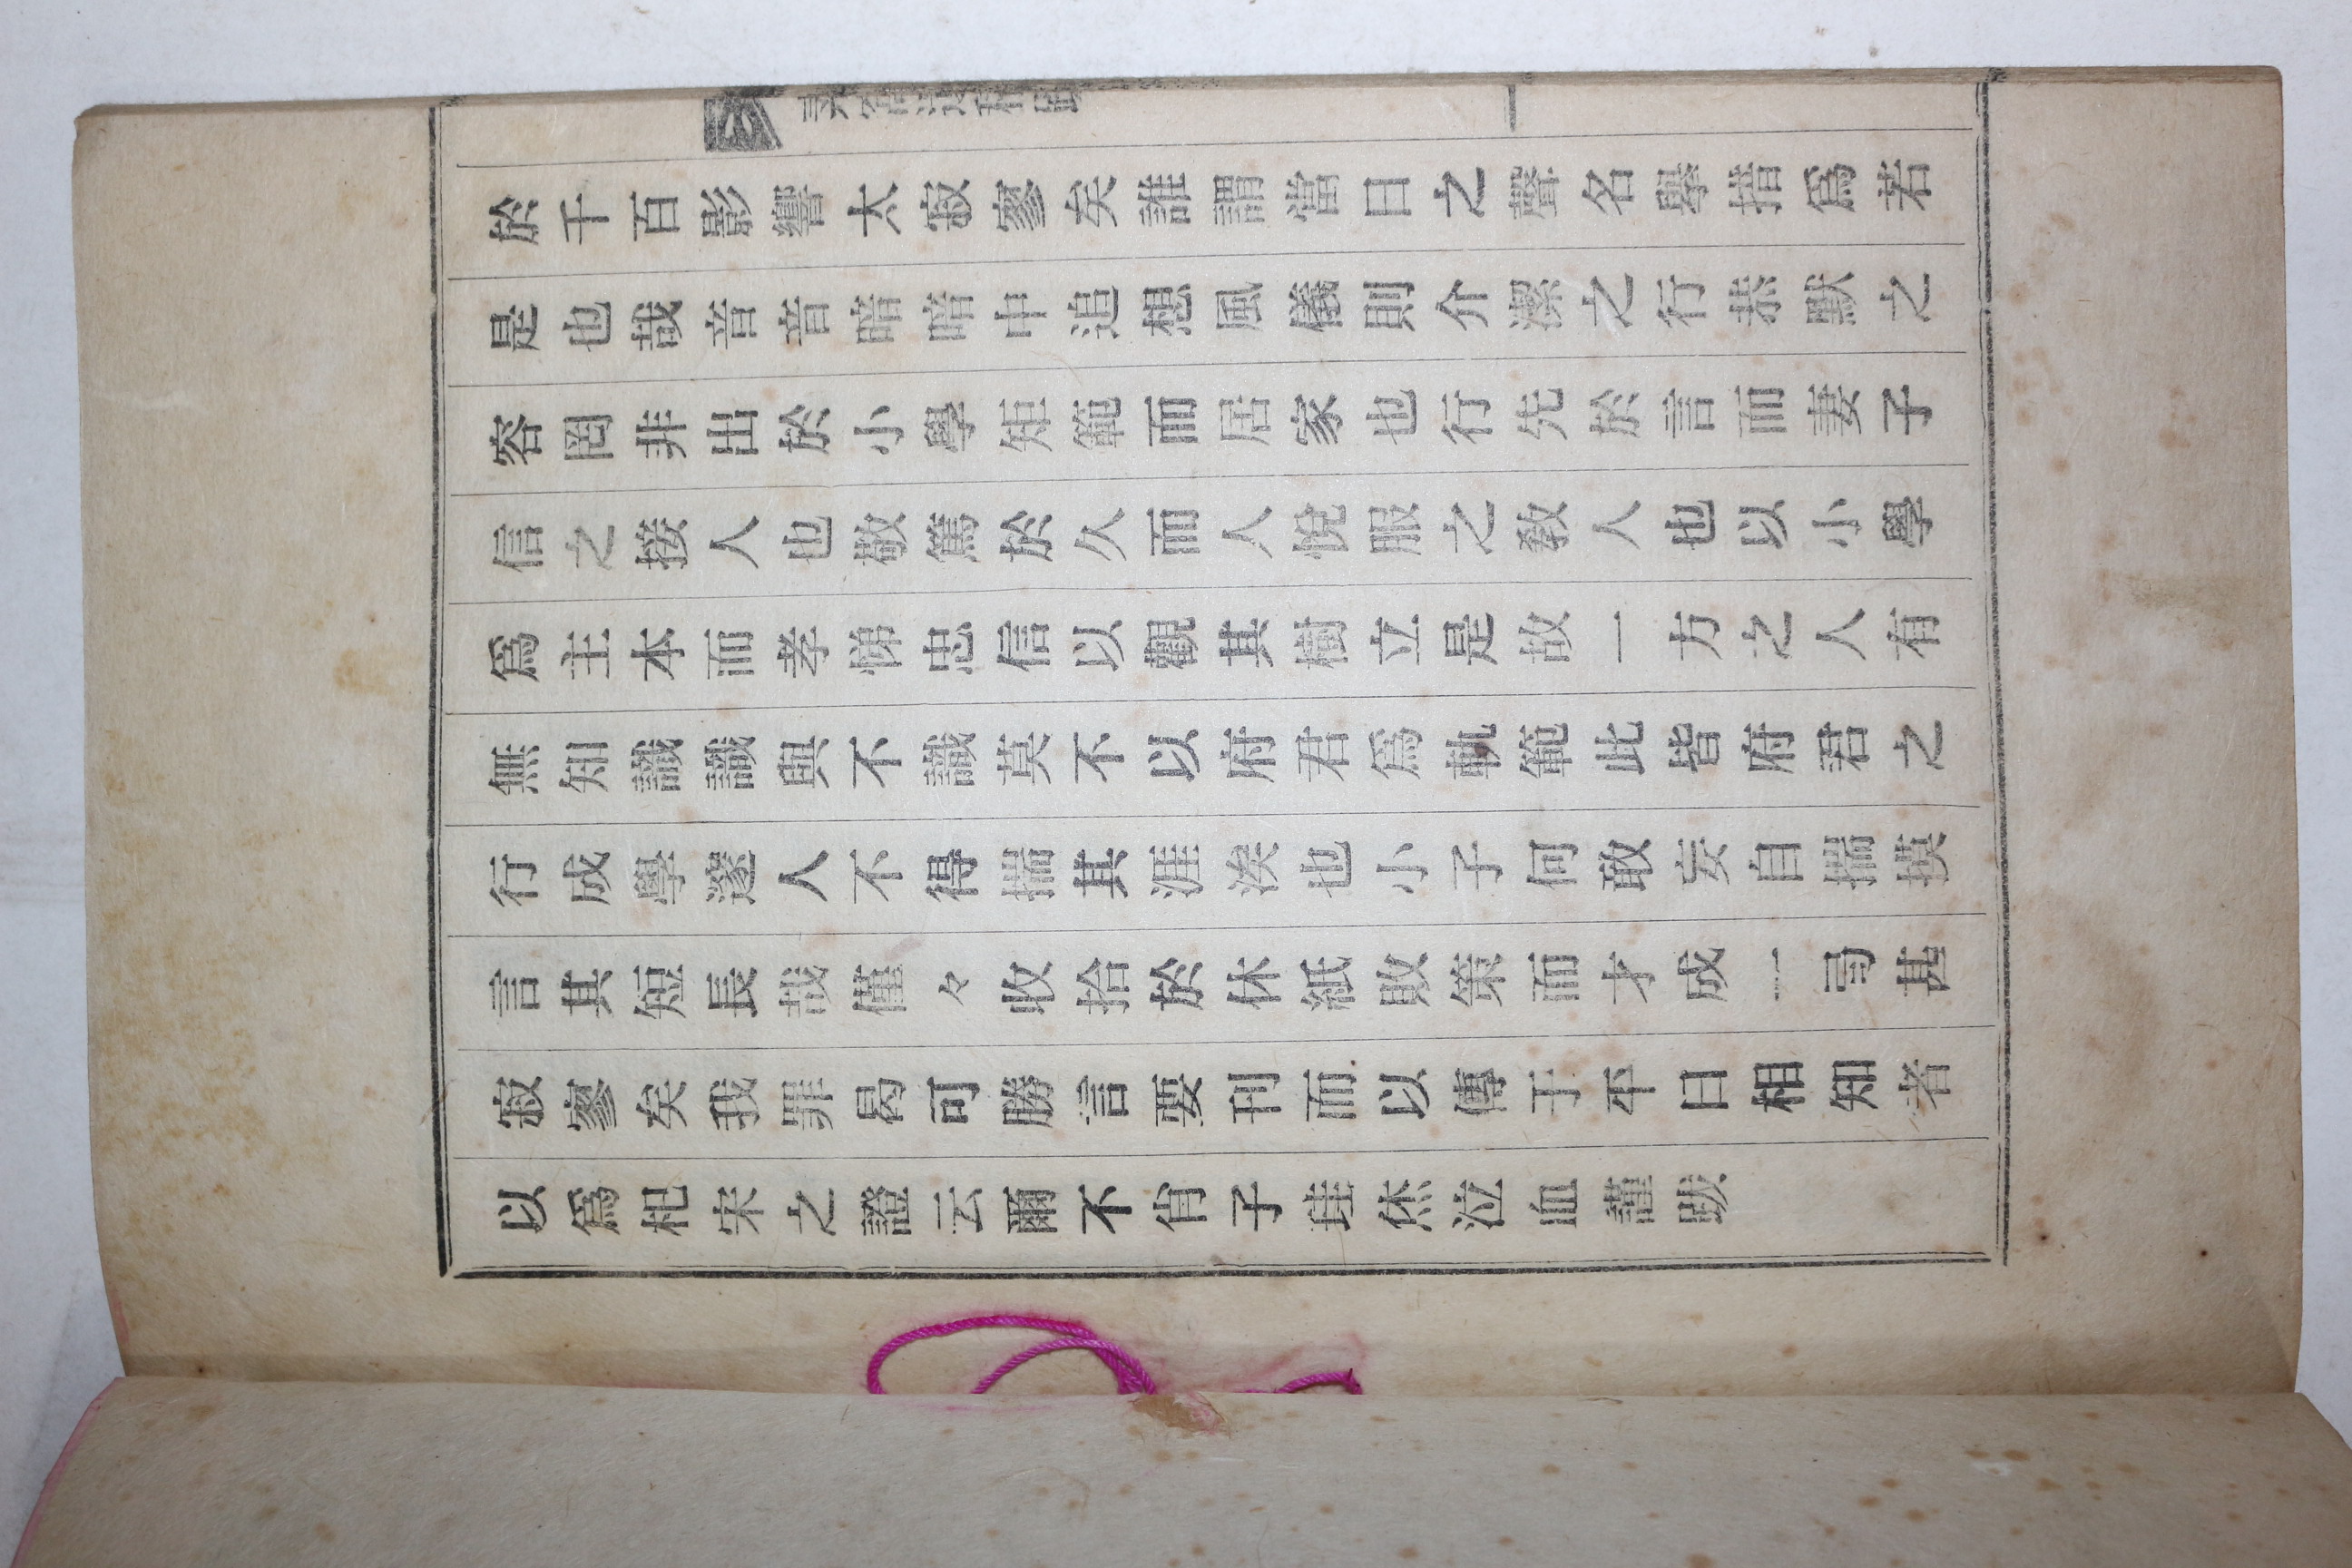 於千百影響太寂寥矣誰謂當日之聲名擧措爲若
是也哉音音暗暗中追想風儀則介潔之行恭默之
容罔非出於小學矩範而居家也行先於言而妻子
信之接人也敬篤於久而人悅服之敎人也以小學
爲主本而孝悌忠信以觀其樹立是故一方之人有
無知識識與不識莫不以府君爲軌範此皆府君之
行成學邃人不得揣其涯涘也小子何敢妄自揣摸
言其短長哉僅々收拾於休紙敗策而才成一弓甚
寂寥矣我罪曷可勝言要刊而以傳于平日相知者
以爲杞宋之證云爾不肖子珪烋泣血謹跋